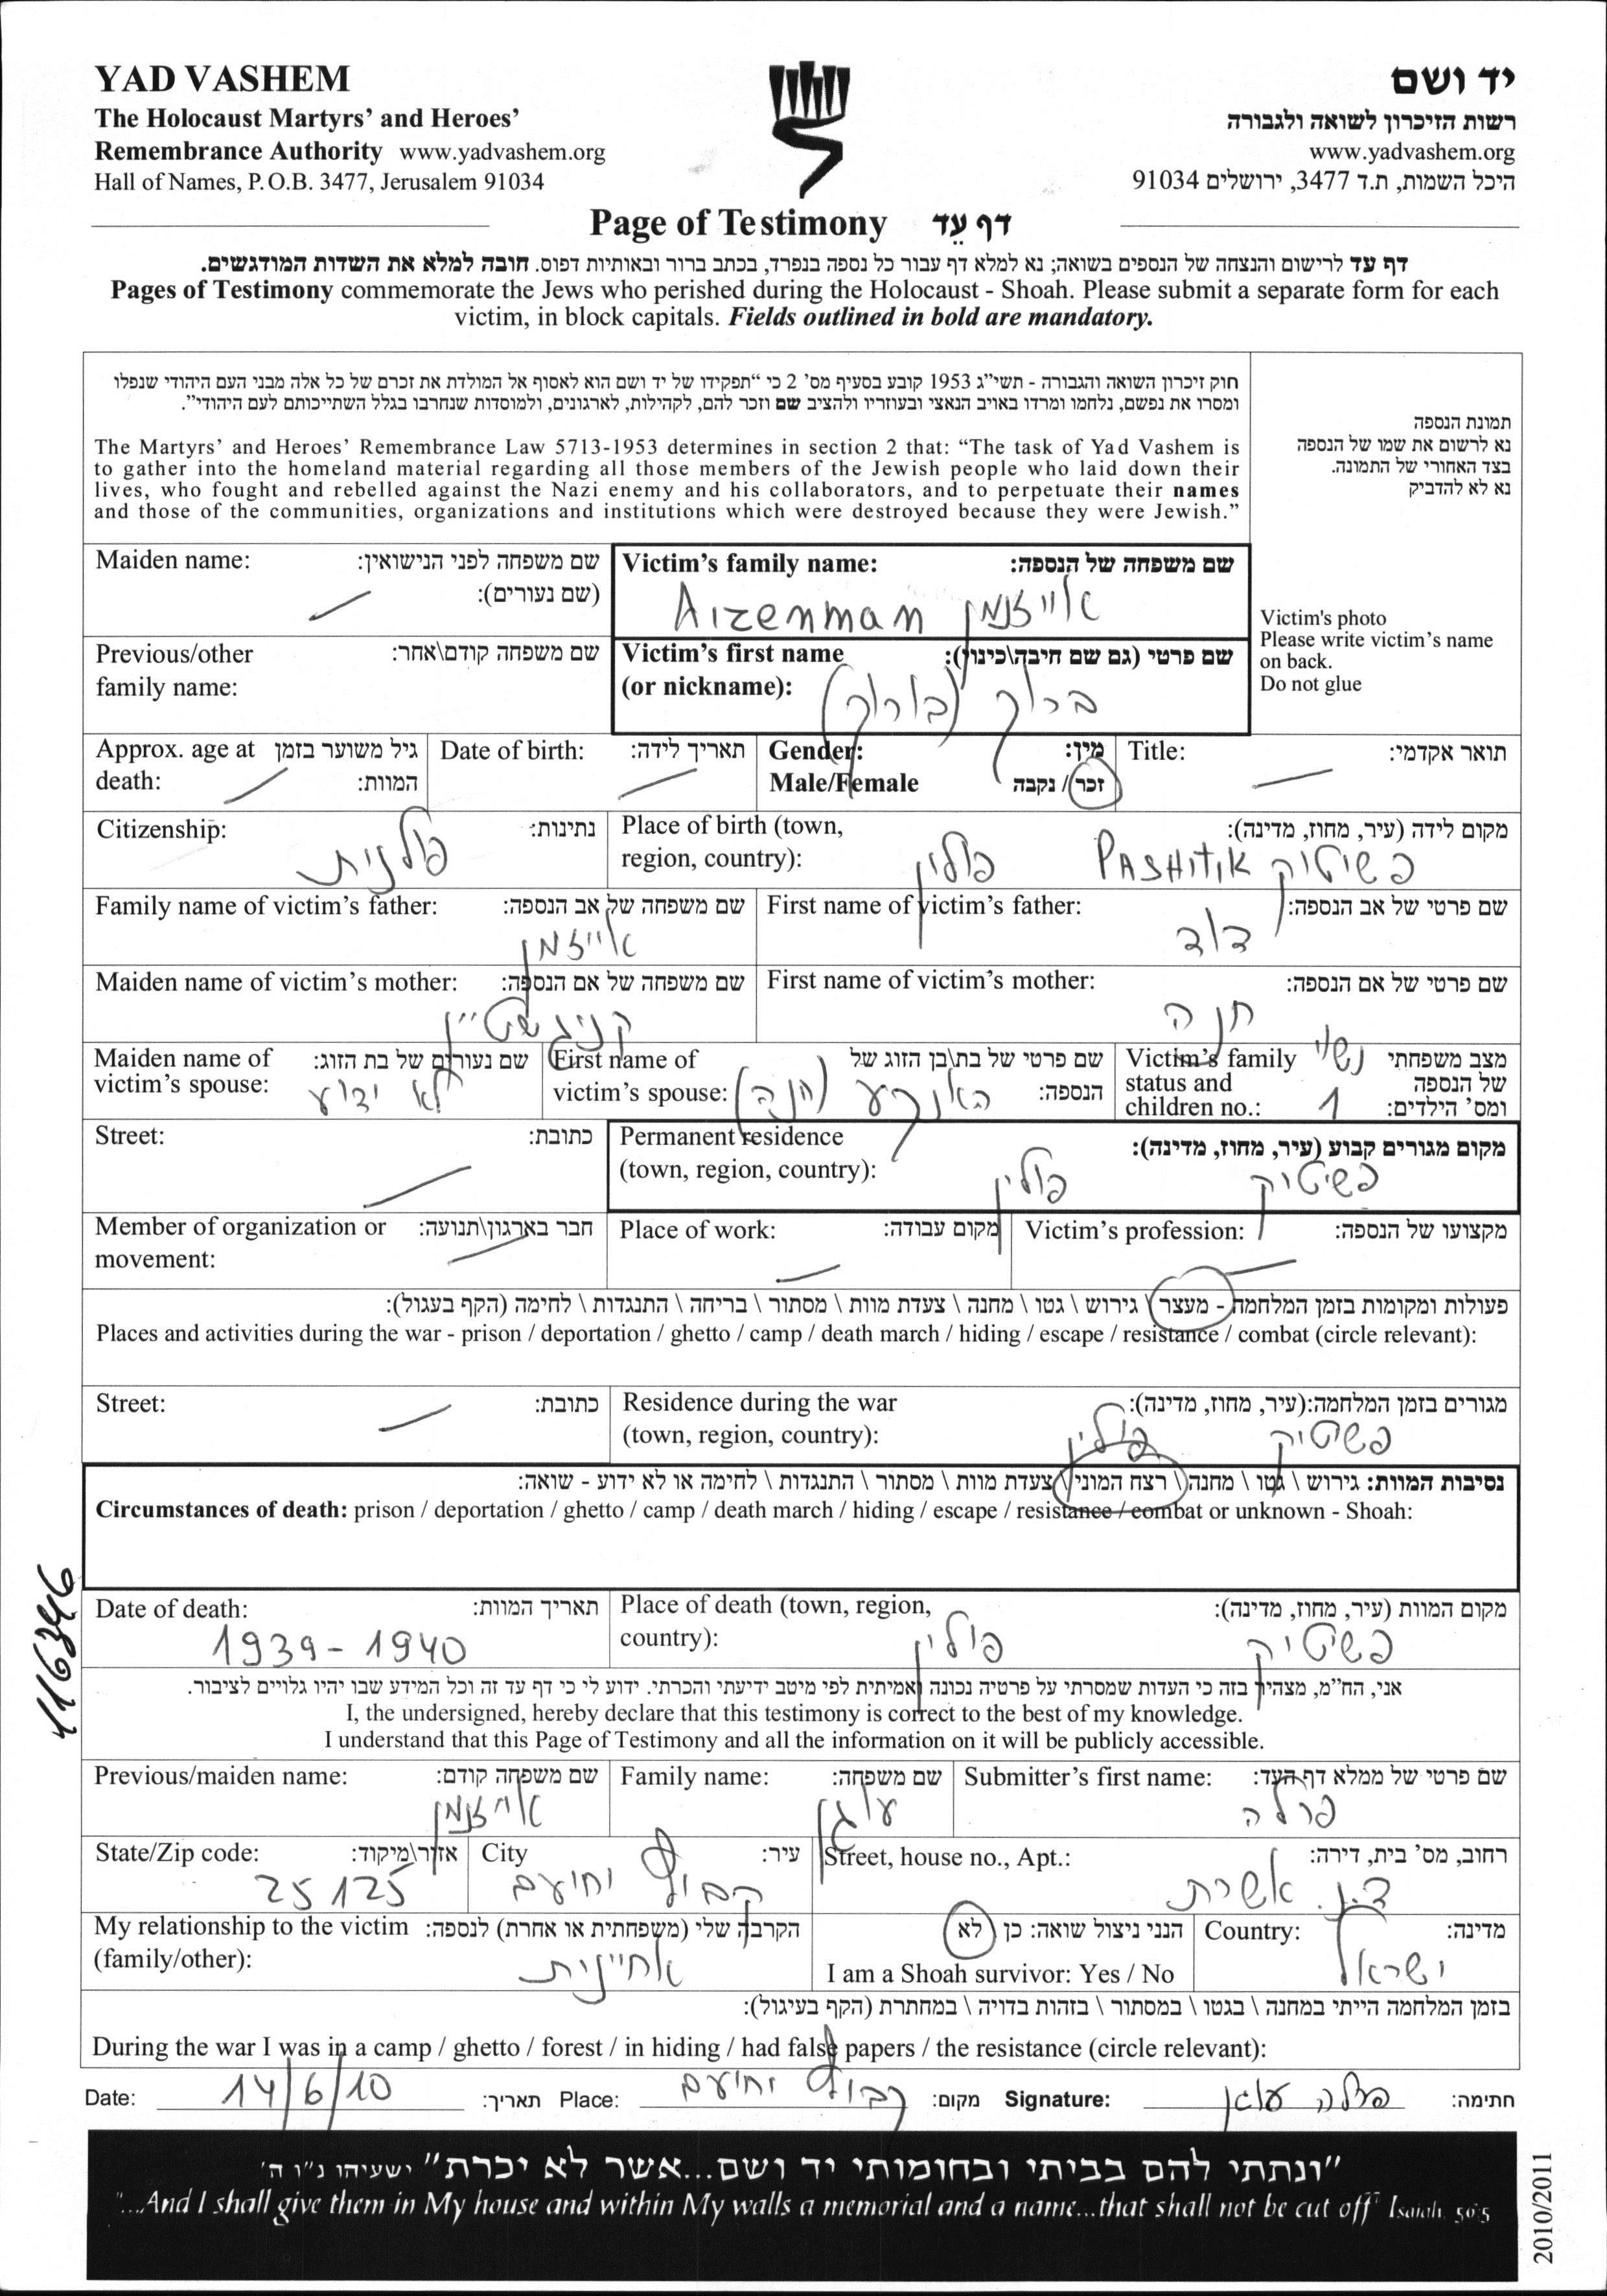 YAD VASHEM
The Holocaust Martyrs' and Heroes'
Remembrance Authority www.yadvashem.org
Hall of Names, P.O.B. 3477, Jerusalem 91034
יד ושם
רשות הזיכרון לשואה ולגבורה
www.yadvashem.org
היכל השמות, ת.ד 3477, ירושלים 91034
Page of Testimony דף עֵד
דף עד לרישום והנצחה של הנספים בשואה; נא למלא דף עבור כל נספה בנפרד, בכתב ברור ובאותיות דפוס. חובה למלא את השדות המודגשים.
Pages of Testimony commemorate the Jews who perished during the Holocaust - Shoah. Please submit a separate form for each
victim, in block capitals. Fields outlined in bold are mandatory.
חוק זיכרון השואה והגבורה - תשי"ג 1953 קובע בסעיף מס' 2 כי "תפקידו של יד ושם הוא לאסוף אל המולדת את זכרם של כל אלה מבני העם היהודי שנפלו
ומסרו את נפשם, נלחמו ומרדו באויב הנאצי ובעוזריו ולהציב שם וזכר להם, לקהילות, לארגונים, ולמוסדות שנחרבו בגלל השתייכותם לעם היהודי".
The Martyrs' and Heroes' Remembrance Law 5713-1953 determines in section 2 that: "The task of Yad Vashem is
to gather into the homeland material regarding all those members of the Jewish people who laid down their
lives, who fought and rebelled against the Nazi enemy and his collaborators, and to perpetuate their names
and those of the communities, organizations and institutions which were destroyed because they were Jewish."
תמונת הנספה
נא לרשום את שמו של הנספה
בצד האחורי של התמונה.
נא לא להדביק
Victim's photo
Please write victim's name
on back.
Do not glue
Maiden name: שם משפחה לפני הנישואין:
(שם נעורים):
Victim's family name: שם משפחה של הנספה:
Aizenman אייזנמן
Previous/other שם משפחה קודם\אחר:
family name:
Victim's first name שם פרטי (גם שם חיבה\כינוי):
(or nickname): ברוך (בורוך)
Approx. age at גיל משוער בזמן
death: המוות:
Date of birth: תאריך לידה:
Gender: מין:
Male/Female זכר / נקבה
Title: תואר אקדמי:
Citizenship: נתינות:
פולנית
Place of birth (town, מקום לידה (עיר, מחוז, מדינה):
region, country): פשיטיק PASHITIK פולין
Family name of victim's father: שם משפחה של אב הנספה:
אייזנמן
First name of victim's father: שם פרטי של אב הנספה:
דוד
Maiden name of victim's mother: שם משפחה של אם הנספה:
קניגשטיין
First name of victim's mother: שם פרטי של אם הנספה:
חנה
Maiden name of שם נעורים של בת הזוג:
victim's spouse: לא ידוע
First name of שם פרטי של בת\בן הזוג של
victim's spouse: הנספה: (חנה)
Victim's family מצב משפחתי נשוי
status and של הנספה
children no.: ומס' הילדים: 1
Street: כתובת:
Permanent residence מקום מגורים קבוע (עיר, מחוז, מדינה):
(town, region, country): פשיטיק פולין
Member of organization or חבר בארגון\תנועה:
movement:
Place of work: מקום עבודה:
Victim's profession: מקצועו של הנספה:
פעולות ומקומות בזמן המלחמה - מעצר \ גירוש \ גטו \ מחנה \ צעדת מוות \ מסתור \ בריחה \ התנגדות \ לחימה (הקף בעגול):
Places and activities during the war - prison / deportation / ghetto / camp / death march / hiding / escape / resistance / combat (circle relevant):
Street: כתובת:
Residence during the war מגורים בזמן המלחמה:(עיר, מחוז, מדינה):
(town, region, country): פשיטיק פולין
נסיבות המוות: גירוש \ גטו \ מחנה \ רצח המוני \ צעדת מוות \ מסתור \ התנגדות \ לחימה או לא ידוע - שואה:
Circumstances of death: prison / deportation / ghetto / camp / death march / hiding / escape / resistance / combat or unknown - Shoah:
116346
Date of death: תאריך המוות:
1939 - 1940
Place of death (town, region, מקום המוות (עיר, מחוז, מדינה):
country): פשיטיק פולין
אני, הח"מ, מצהיר בזה כי העדות שמסרתי על פרטיה נכונה ואמיתית לפי מיטב ידיעתי והכרתי. ידוע לי כי דף עד זה וכל המידע שבו יהיו גלויים לציבור.
I, the undersigned, hereby declare that this testimony is correct to the best of my knowledge.
I understand that this Page of Testimony and all the information on it will be publicly accessible.
Previous/maiden name: שם משפחה קודם:
אייזנמן
Family name: שם משפחה:
עוגן
Submitter's first name: שם פרטי של ממלא דף העד:
פרלה
State/Zip code: אזור\מיקוד:
25125
City עיר:
קבוץ יחיעם
Street, house no., Apt.: רחוב, מס' בית, דירה:
ד.נ. אשרת
My relationship to the victim הקרבה שלי (משפחתית או אחרת) לנספה:
(family/other): אחיינית
הנני ניצול שואה: כן לא
I am a Shoah survivor: Yes / No
Country: מדינה:
ישראל
בזמן המלחמה הייתי במחנה \ בגטו \ במסתור \ בזהות בדויה \ במחתרת (הקף בעיגול):
During the war I was in a camp / ghetto / forest / in hiding / had false papers / the resistance (circle relevant):
Date: 14/6/10 תאריך: Place: קבוץ יחיעם מקום: Signature: פרלה עוגן חתימה:
"ונתתי להם בביתי ובחומותי יד ושם...אשר לא יכרת" ישעיהו נ"ו ה'
"...And I shall give them in My house and within My walls a memorial and a name...that shall not be cut off" Isaiah, 56:5
2010/2011